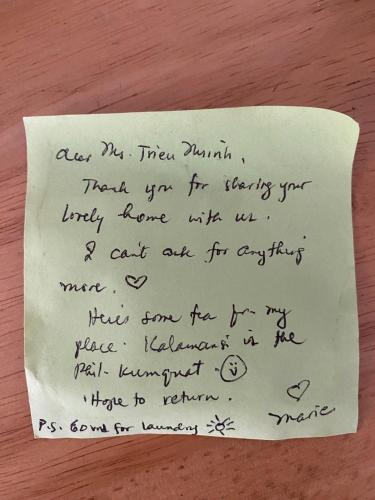 Dear Ms. Trieu Minh,
Thank you for sharing your
lovely home with us.
I can't ask for anything
more. ♡
Here's some tea from my
place. Kalamansi is the
Phil. kumquat. ☺
Hope to return. ♡
Marie
P.S. 60 md for laundry